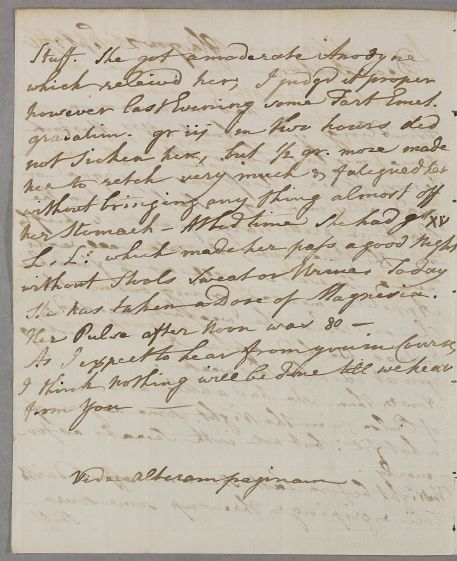 Stuff. She got a moderate Anodyne
which releivd her, I judg'd it proper
however last Evening some Tart Emet.
gradatim. gr iij in two hours did
not Sicken her, but 1/2 gr. more made
her to retch very much & fatigued her
without bringing any thing almost off
her Stomach - At Bed time She had gtt XV
L. L. which made her pass a good Night
without Stools Sweat or Urines Today
She has taken a Dose of Magnesia.
Her Pulse after Noon was 80 -
As I expect to hear from you in Course,
I think nothing will be done till we hear
from You
Vide alteram paginam